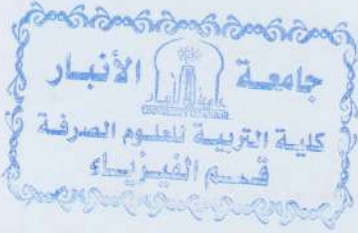 جامعة الأنبار
كلية التربية للعلوم الصرفة
قسم الفيزياء